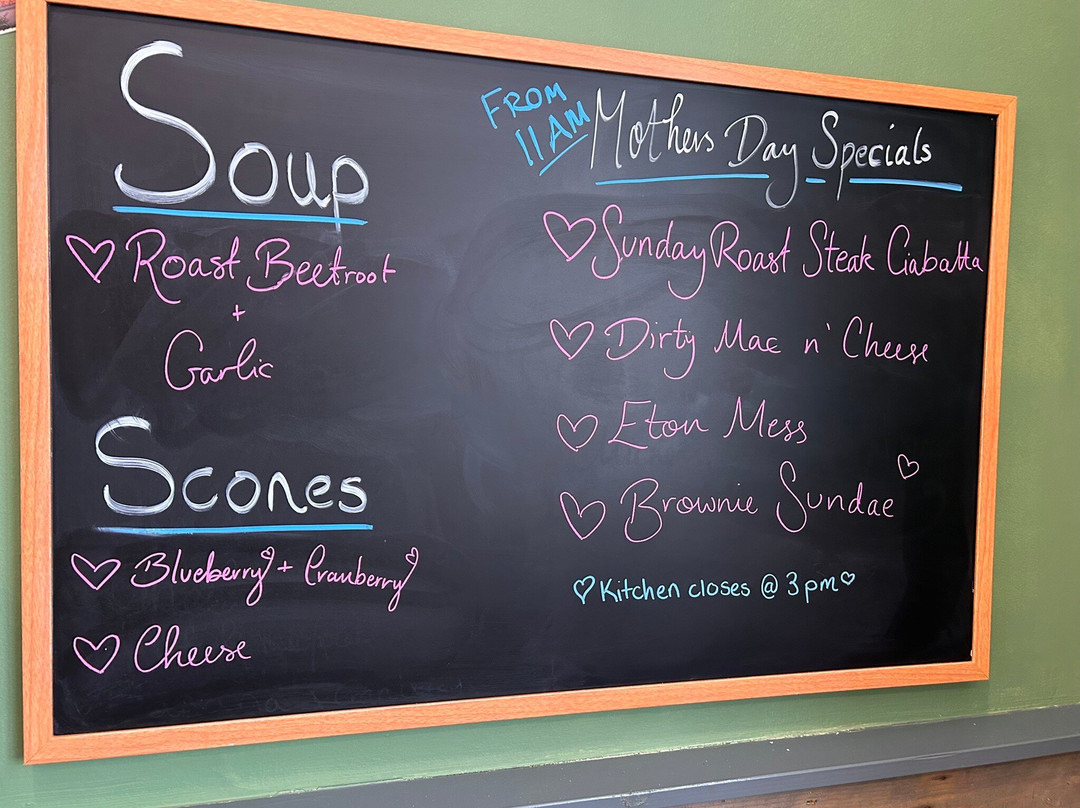 Soup
Roast Beetroot
+
Garlic
Scones
Blueberry + Cranberry
Cheese
FROM
11AM
Mothers Day Specials
Sunday Roast Steak Ciabatta
Dirty Mac n' Cheese
Eton Mess
Brownie Sundae
Kitchen closes @ 3pm